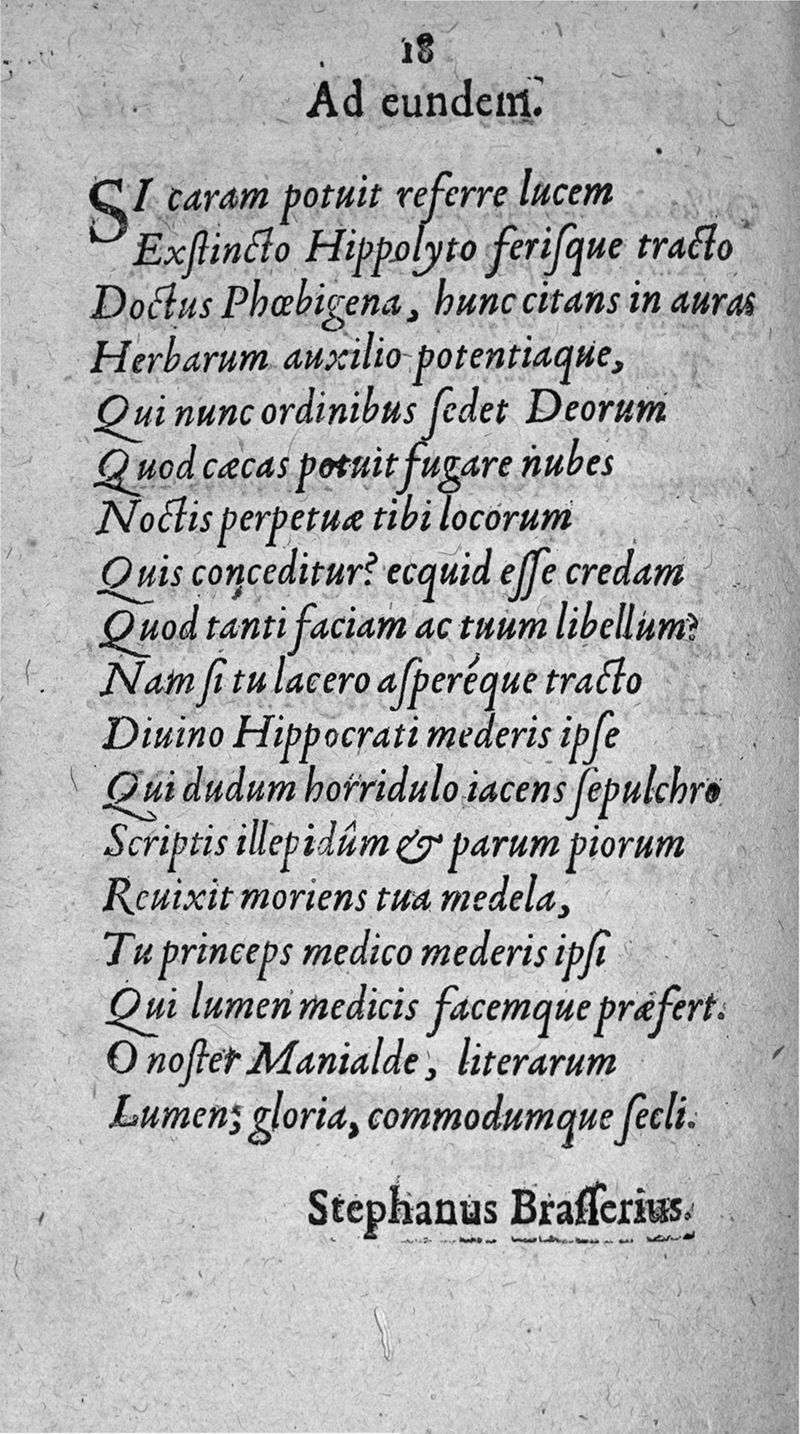 18
Ad eundem.
SI caram potuit referre lucem
Exſtincto Hippolyto feriſque tracto
Doctus Phœbigena, hunc citans in auras
Herbarum auxilio potentiaque,
Qui nunc ordinibus ſedet Deorum
Quod cæcas potuit fugare nubes
Noctis perpetuæ tibi locorum
Quis conceditur? ecquid eſſe credam
Quod tanti faciam ac tuum libellum?
Nam ſi tu lacero aſperéque tracto
Diuino Hippocrati mederis ipſe
Qui dudum horridulo iacens ſepulchro
Scriptis illepidûm & parum piorum
Reuixit moriens tua medela,
Tu princeps medico mederis ipſi
Qui lumen medicis facemque præfert.
O noſter Manialde, literarum
Lumen, gloria, commodumque ſecli.
Stephanus Braſſerius.